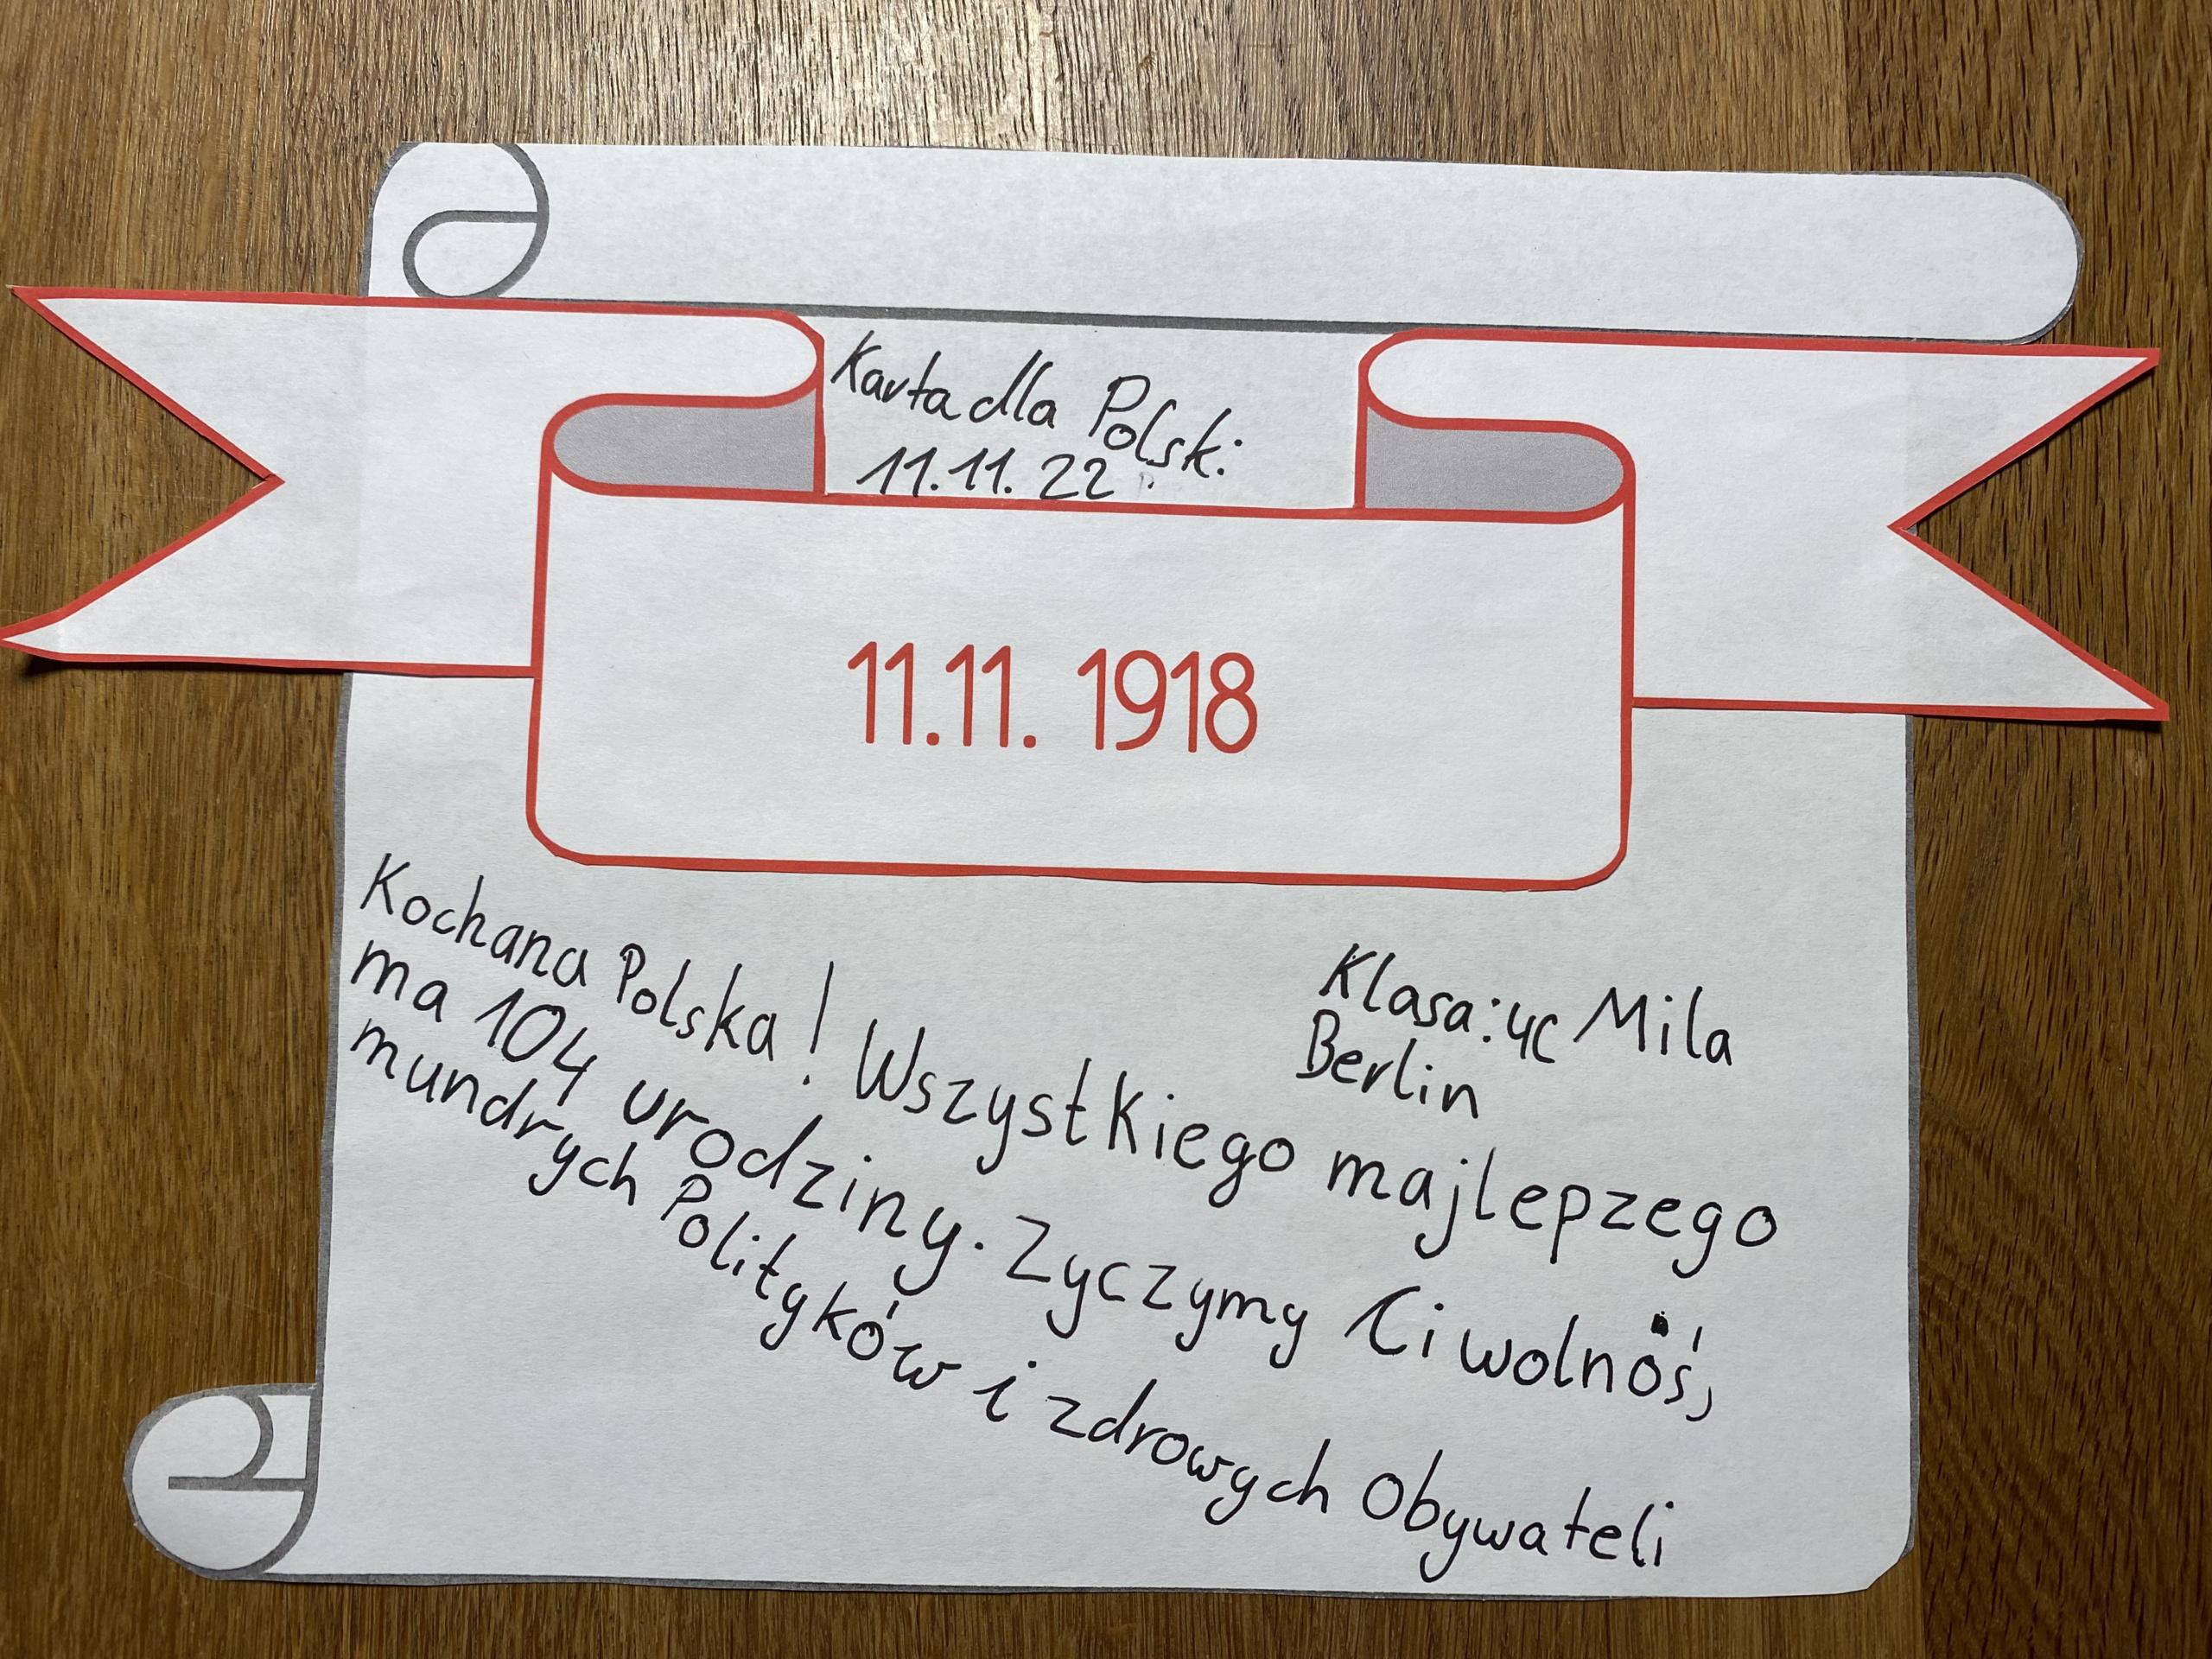 Karta dla Polski
11.11.22
11.11. 1918
Klasa: 4c Mila
Berlin
Kochana Polska! Wszystkiego majlepzego
ma 104 urodziny. Zyczymy Ci wolnoś,
mundrych Polityków i zdrowych Obywateli